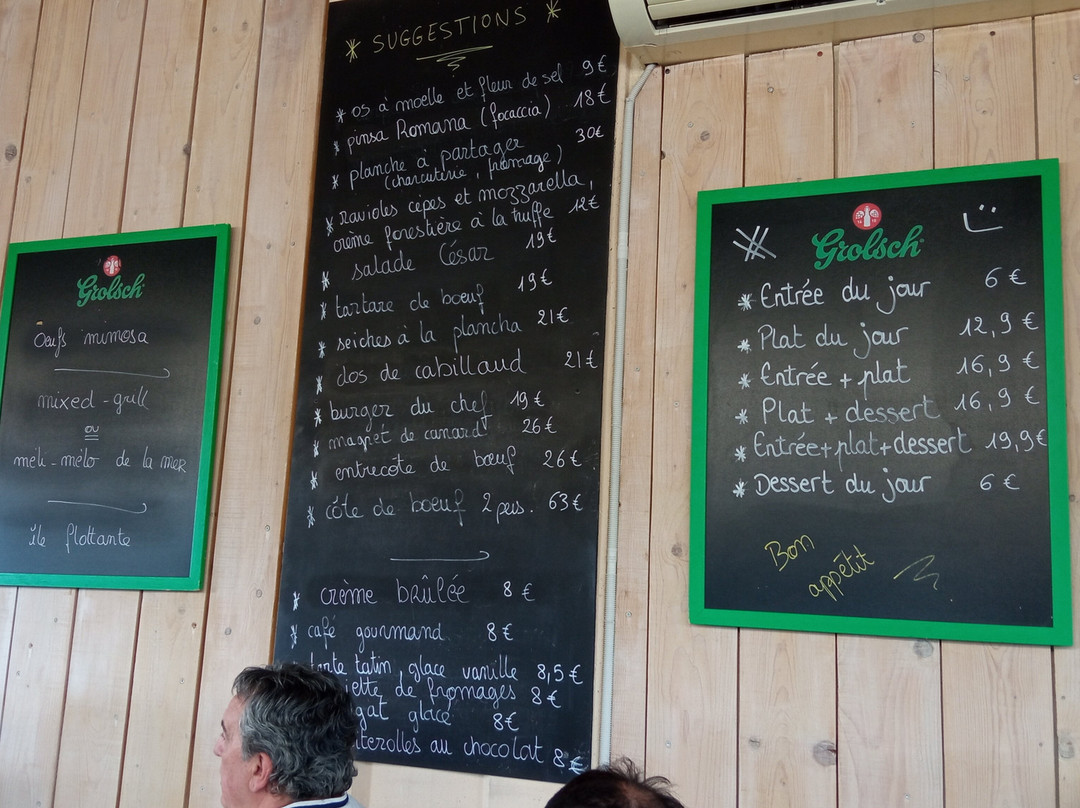 Grolsch
Oeufs mimosa
mixed-grill
ou
méli-mélo de la mer
île flottante
* SUGGESTIONS *
* os à moelle et fleur de sel 9€
* pinsa Romana (focaccia) 18€
* planche à partager 30€
(charcuterie, fromage)
* ravioles cèpes et mozzarella,
crème forestière à la truffe 12€
* salade César 19€
* tartare de boeuf 19€
* seiches à la plancha 21€
* dos de cabillaud 21€
* burger du chef 19€
* magret de canard 26€
* entrecote de bœuf 26€
* côte de boeuf 2 pers. 63€
* crème brûlée 8€
* café gourmand 8€
tarte tatin, glace vanille 8,5€
de fromages 8€
glacé 8€
au chocolat 8€
Grolsch
* Entrée du jour 6€
* Plat du jour 12,9€
* Entrée + plat 16,9€
* Plat + dessert 16,9€
* Entrée+plat+dessert 19,9€
* Dessert du jour 6€
Bon
appétit